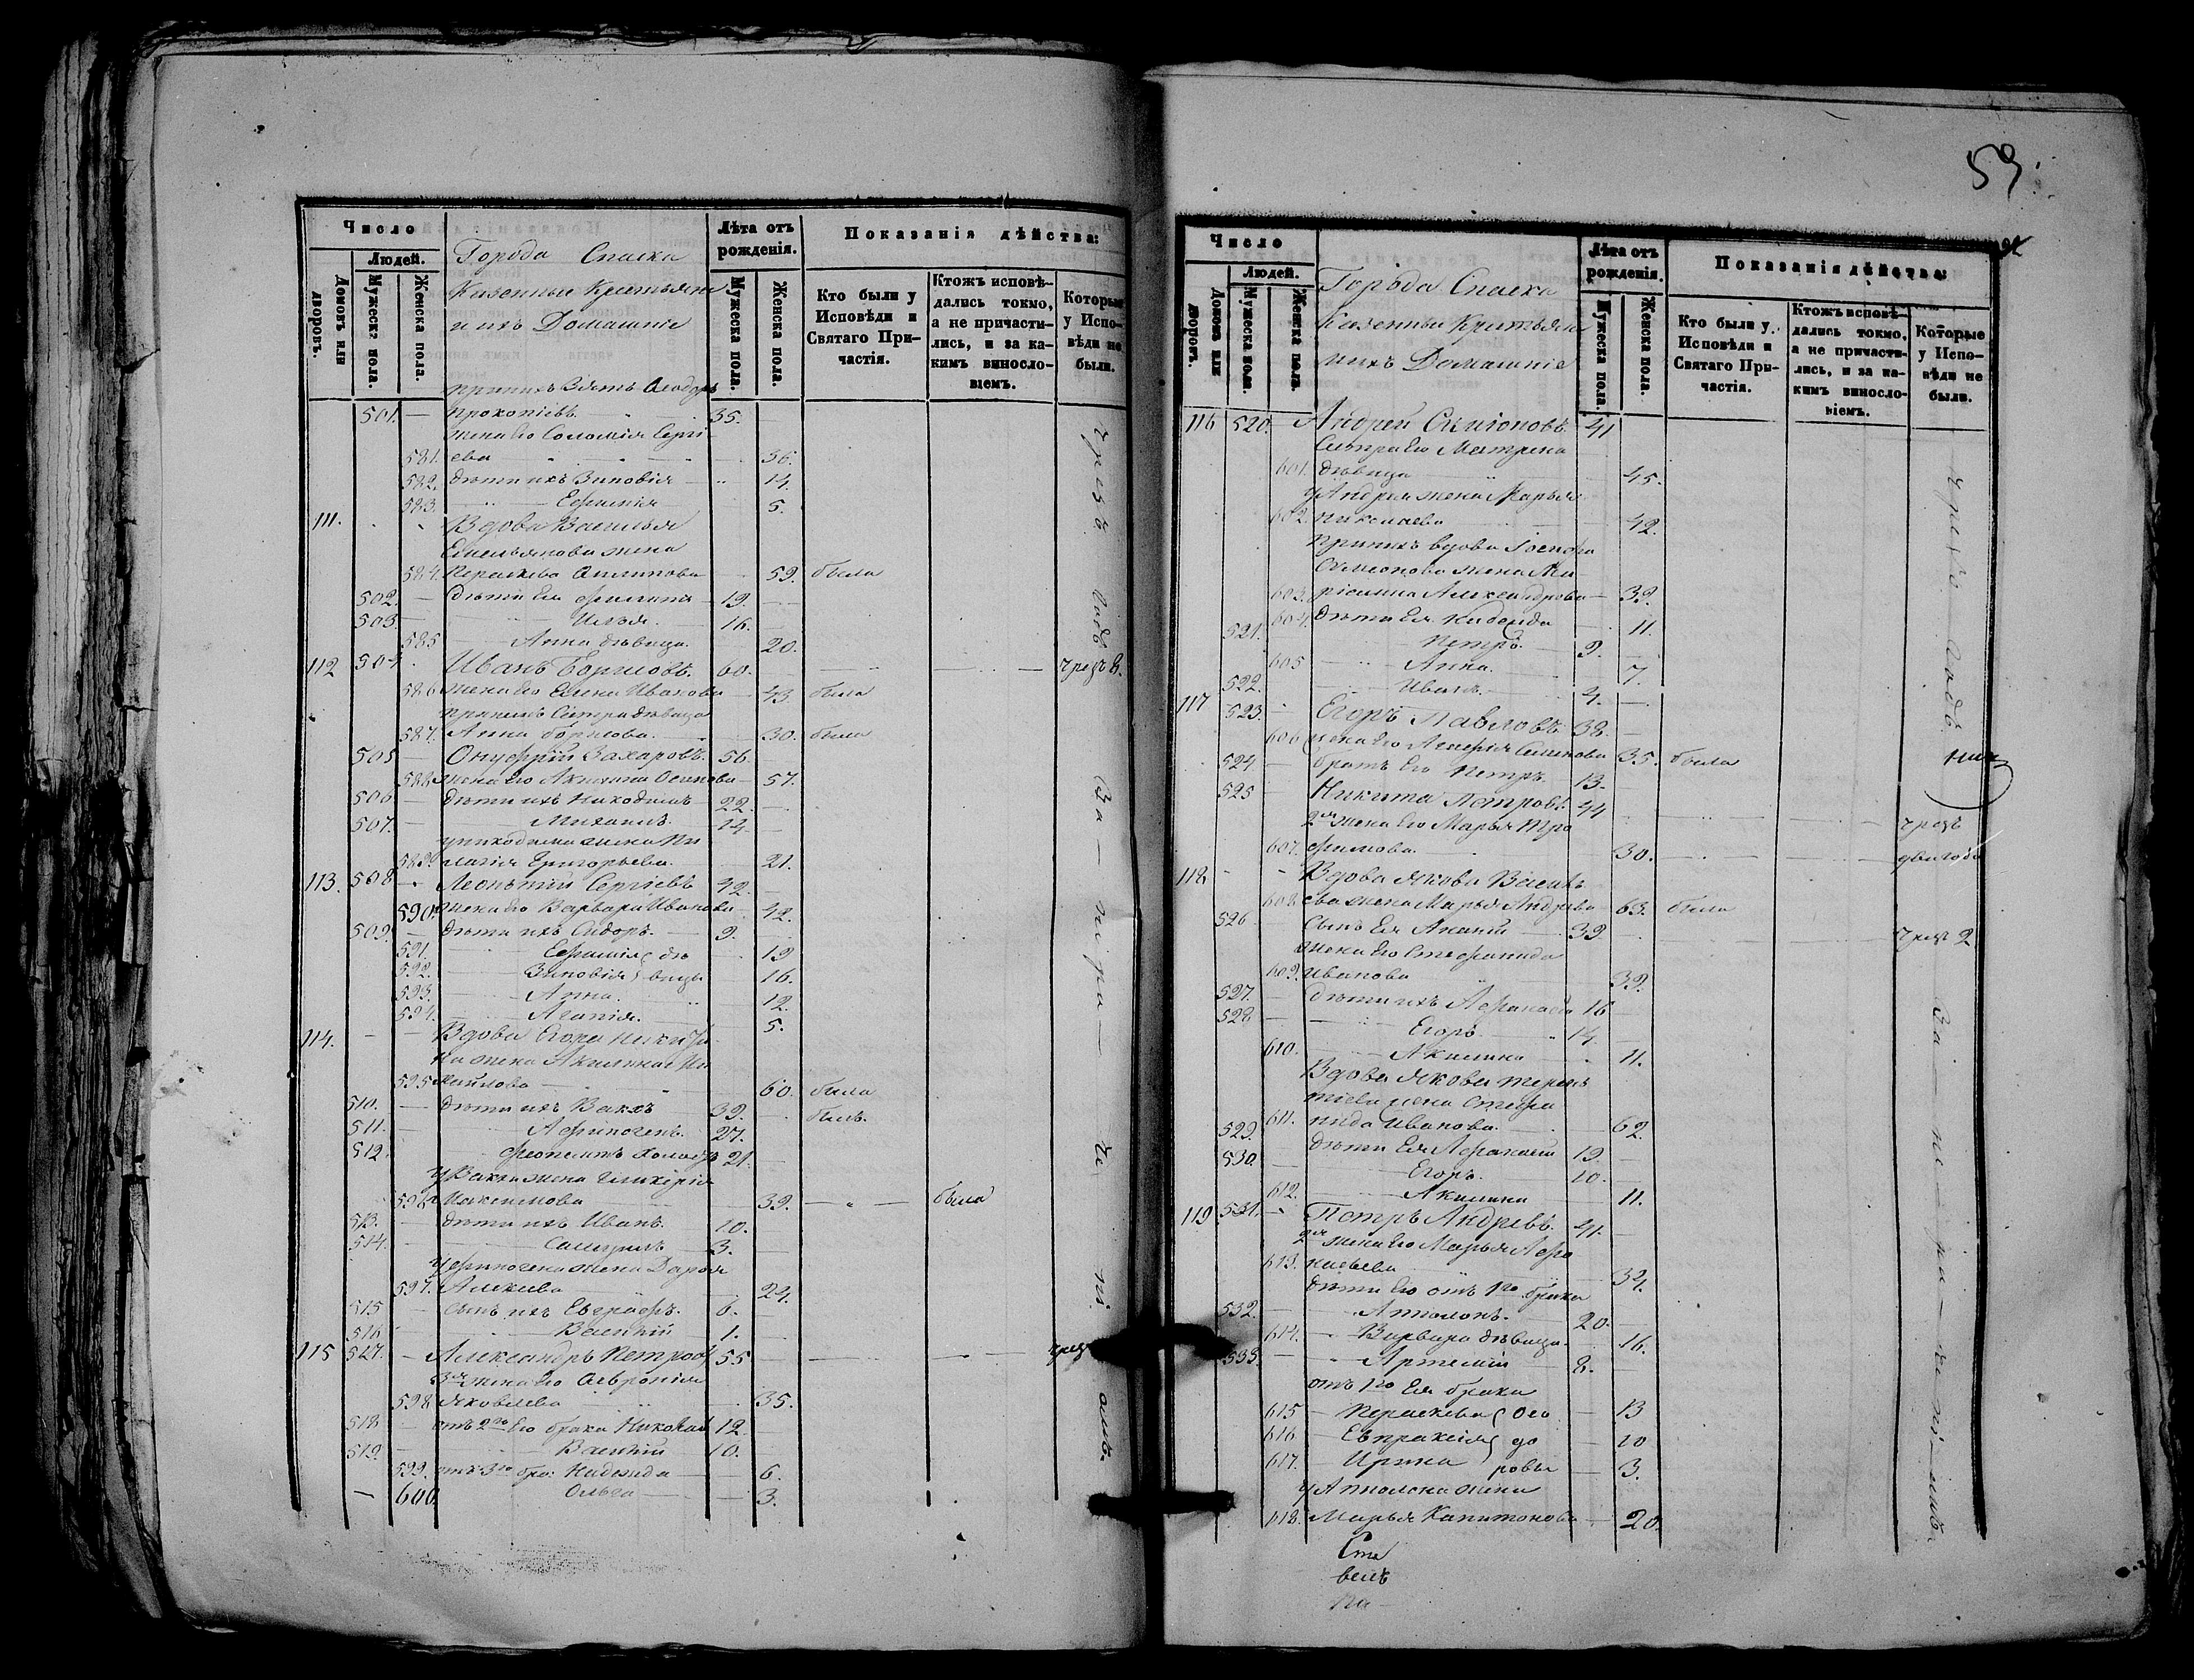 Число
Людей.
Домовъ или дворовъ.
Мужеска пола.
Женска пола.
Города Спаска
Казенныя Крестьяне
и ихъ Домашніе
Лѣта отъ рожденія.
Мужеска пола.
Женска пола.
Показанія дѣйства:
Кто были у Исповѣди и Святаго Причастія.
Ктожъ исповѣдались токмо, а не причастились, и за какимъ винословіемъ.
Которые у Исповѣди не были.
при нихъ Зять
501. — Прокопіевъ. 35.
жена его Соломія Сергі
581. ева 36.
582. дѣти ихъ Зиновія 14.
583. Ефимія 5.
111. Вдова Василья
Емельянова жена
584. Параскева 59. была
502. — дѣти ея Филиппъ 19.
503 — Илья. 16.
585 Анна дѣвица. 20.
112 504. Иванъ Борисовъ. 60. чрезъ
586 жена его Елена Иванова 43. была
при нихъ Сестра дѣвица
587. Анна Борисова. 30. была
505 — Онуфрій Захаровъ. 56
588 жена его Акилина Осипова 57.
506 — дѣти ихъ Никодимъ 22.
507. — Михаилъ. 14.
у Никодима жена Пи
589. лагія Григорьева. 21.
113. 508 Леонтій Сергіевъ 42.
590. жена его Варвара Иванова 42.
509. — дѣти ихъ Сидоръ. 9.
591. Ефимія дѣ 19
592. Зиновія вицы 16.
593. Анна. 12.
594. Агапія. 5.
114. Вдова Егора
жена Акилина Ми
595 хайлова 60. была
510. — дѣти ихъ Вакхъ 39. былъ.
511. — Афиногенъ. 27.
512 Феопемптъ холостъ 21.
у Вакха жена Гликерія
596 Максимова 39. была
513. — дѣти ихъ Иванъ. 10.
514. — 3.
жена Дарья
597. Алексіева 24.
515 — сынъ ихъ Евграфъ. 6.
516 — Василій 1.
115 517. — Александръ Петровъ 55 чрезъ
3я жена его Февронія
598 Яковлева 35.
518 — отъ 2го его брака Николай 12.
519. — Василій 10.
599. отъ 3го бра: Надежда 6.
— 600 Ольга 3.
чрезъ годъ
59.
Число
Людей.
Домовъ или дворовъ.
Мужеска пола.
Женска пола.
Города Спаска
Казенныя Крестьяне
и ихъ Домашніе
Лѣта отъ рожденія.
Мужеска пола.
Женска пола.
Показанія дѣйства:
Кто были у Исповѣди и Святаго Причастія.
Ктожъ исповѣдались токмо, а не причастились, и за какимъ винословіемъ.
Которые у Исповѣди не были.
116 520. — Андрей Симіоновъ. 41
Сестра его Матрена
601. дѣвица 45.
у Андрея жена Марья
602. Николаева 42.
при нихъ вдова
Симеонова жена Ма
603. Александрова 39.
604. дѣти ея Надежда 11.
521. Петръ. 9.
605 Анна. 7.
522. Иванъ. 4.
117 523. Егоръ Павловъ 38.
606 жена его Агафія Семенова 35. была
524. — братъ его Петръ. 13.
525 — Никита Петровъ. 44 чрезъ
2я жена его Марья Тро
607. фимова. 30. два года
118 Вдова Якова Василь
608. ева жена Марья Андрева 63. была
526 Сынъ ея Ананій 39. чрезъ 2
жена его Стефанида
609. Иванова 39.
527. — дѣти ихъ Афанасій 16
528 — Егоръ 14.
610. Акилина 11.
Вдова Якова Терень
тіева жена Стефа
611. нида Иванова. 62.
529. дѣти ея Афанасій 19
530. Егоръ. 10.
612. Акилина 11.
119 531. Петръ Андревъ. 41.
2я жена его Марья Афа
613. насьева 34.
дѣти его отъ 1го брака
532. Аполонъ. 20.
614. Варвара дѣвица. 16.
533. Артемій 8.
отъ 1го ея брака
615 — Параскева Ѳео 13
616 — Евпраксія до 10
617. — Ирина ровы 3.
у Аполона жена
618. Марья Капитонова 20.
чрезъ годъ